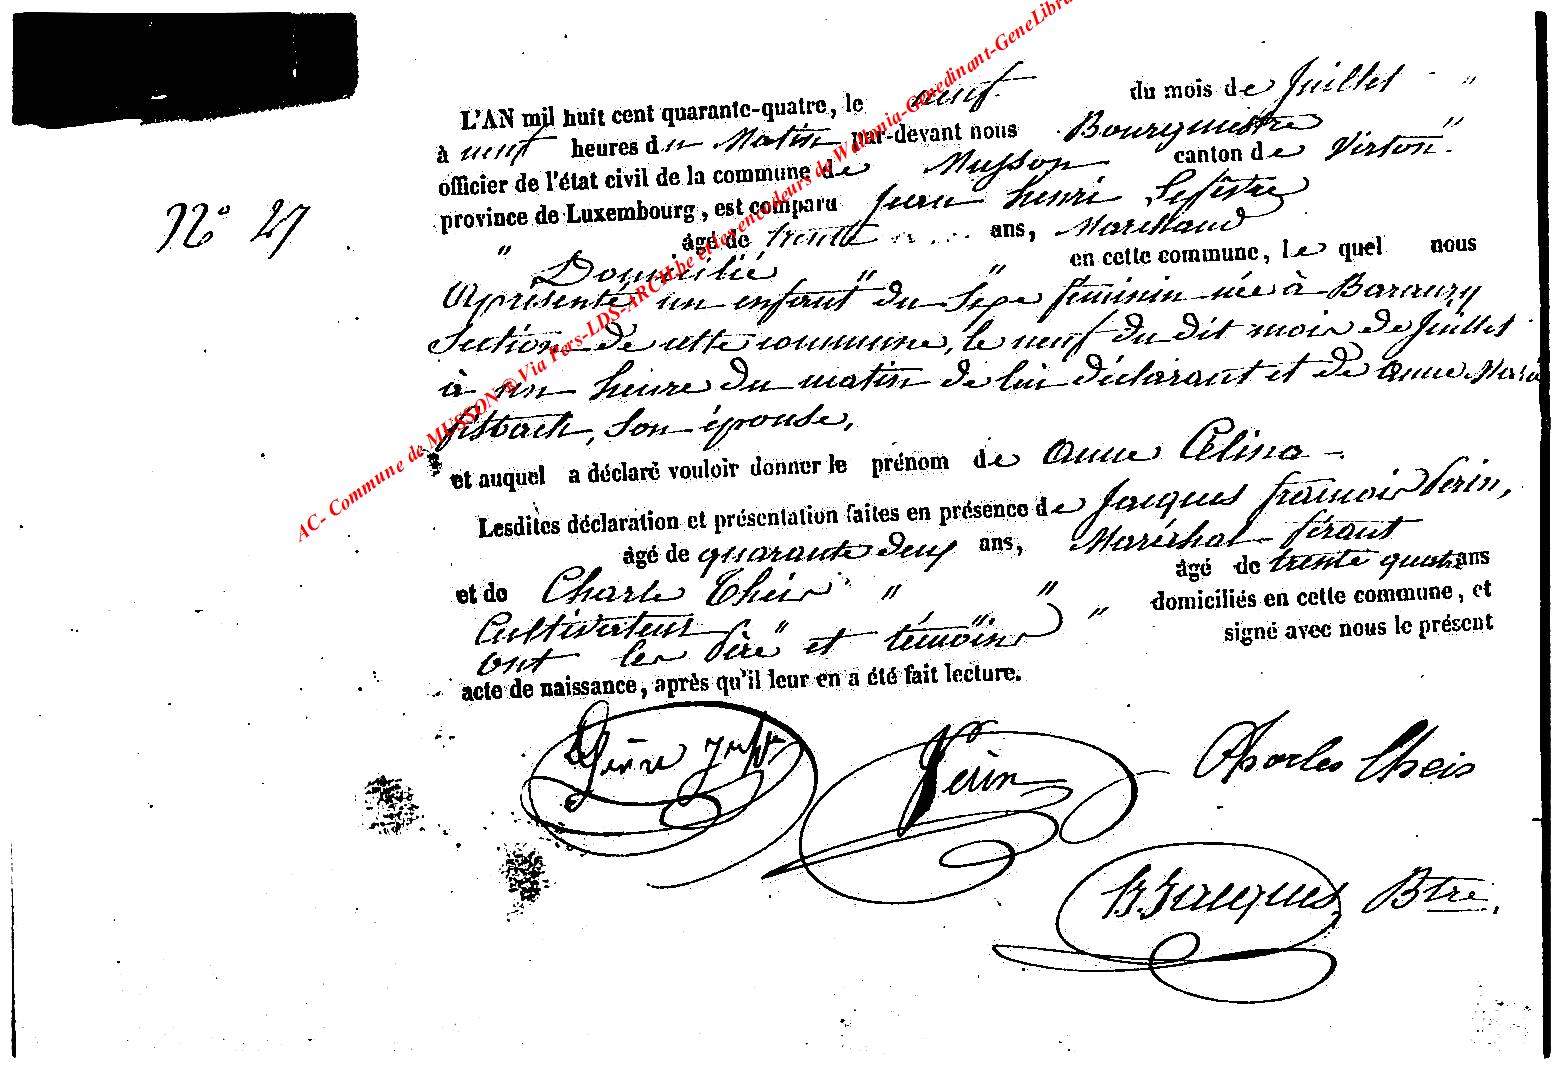 L'AN mil huit cent quarante-quatre, le neuf du mois de Juillet "
à neuf heures du Matin par-devant nous Bourgmestre
officier de l'état civil de la commune de Musson canton de Virton "
province de Luxembourg, est comparu Jean Henri Lefèvre
N° 27
" âgé de trente ans, Marchand
Domicilié " " en cette commune, le quel nous
a présenté un enfant du Sexe féminin née à Baranzy
Section de cette commune, le neuf du dit mois de Juillet
à un heure du matin de lui déclarant et de Anne Marie
son épouse,
et auquel a déclaré vouloir donner le prénom de Anne Célina -
Lesdites déclaration et présentation faites en présence de Jacques françois Perin,
âgé de quarante deux ans, Maréchal férant
et de Charle Theis " " âgé de trente quatre ans
Cultivateur " " " domiciliés en cette commune, et
ont les Père et témoins signé avec nous le présent
acte de naissance, après qu'il leur en a été fait lecture.
Perin
Charles Theis
B. Jacques Btre.
AC- Commune de MUSSON @ Via Pers-LDS-ARCH.be et les encodeurs de Wallonia-Genedinant-GeneLibra